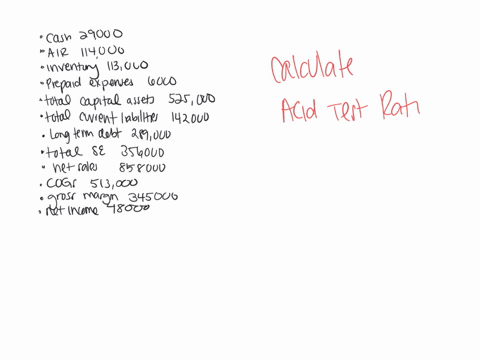 • Cash 29000
• A/R 114,000
• inventory 113,000
• Prepaid expenses 6000
• total capital assets 525,000
• total current liabilities 142000
• Long term debt 289,000
• total SE 356000
• net sales 858000
• COGS 513,000
• gross margin 345000
• net income 48000
Calculate
Acid Test Rati